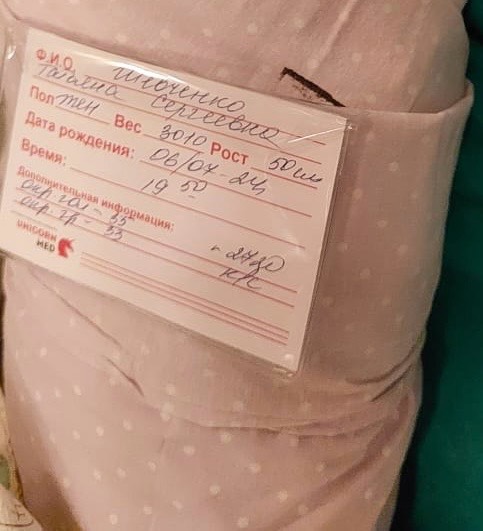 Ф.И.О. Шоченко
Татьяна Сергеевна
Пол жен Вес 3010 Рост 50 см
Дата рождения: 06/07-24
Время: 19 50
Дополнительная информация:
окр. гол - 35
окр. гр - 33
- 2720
к/с
UNICORN
MED